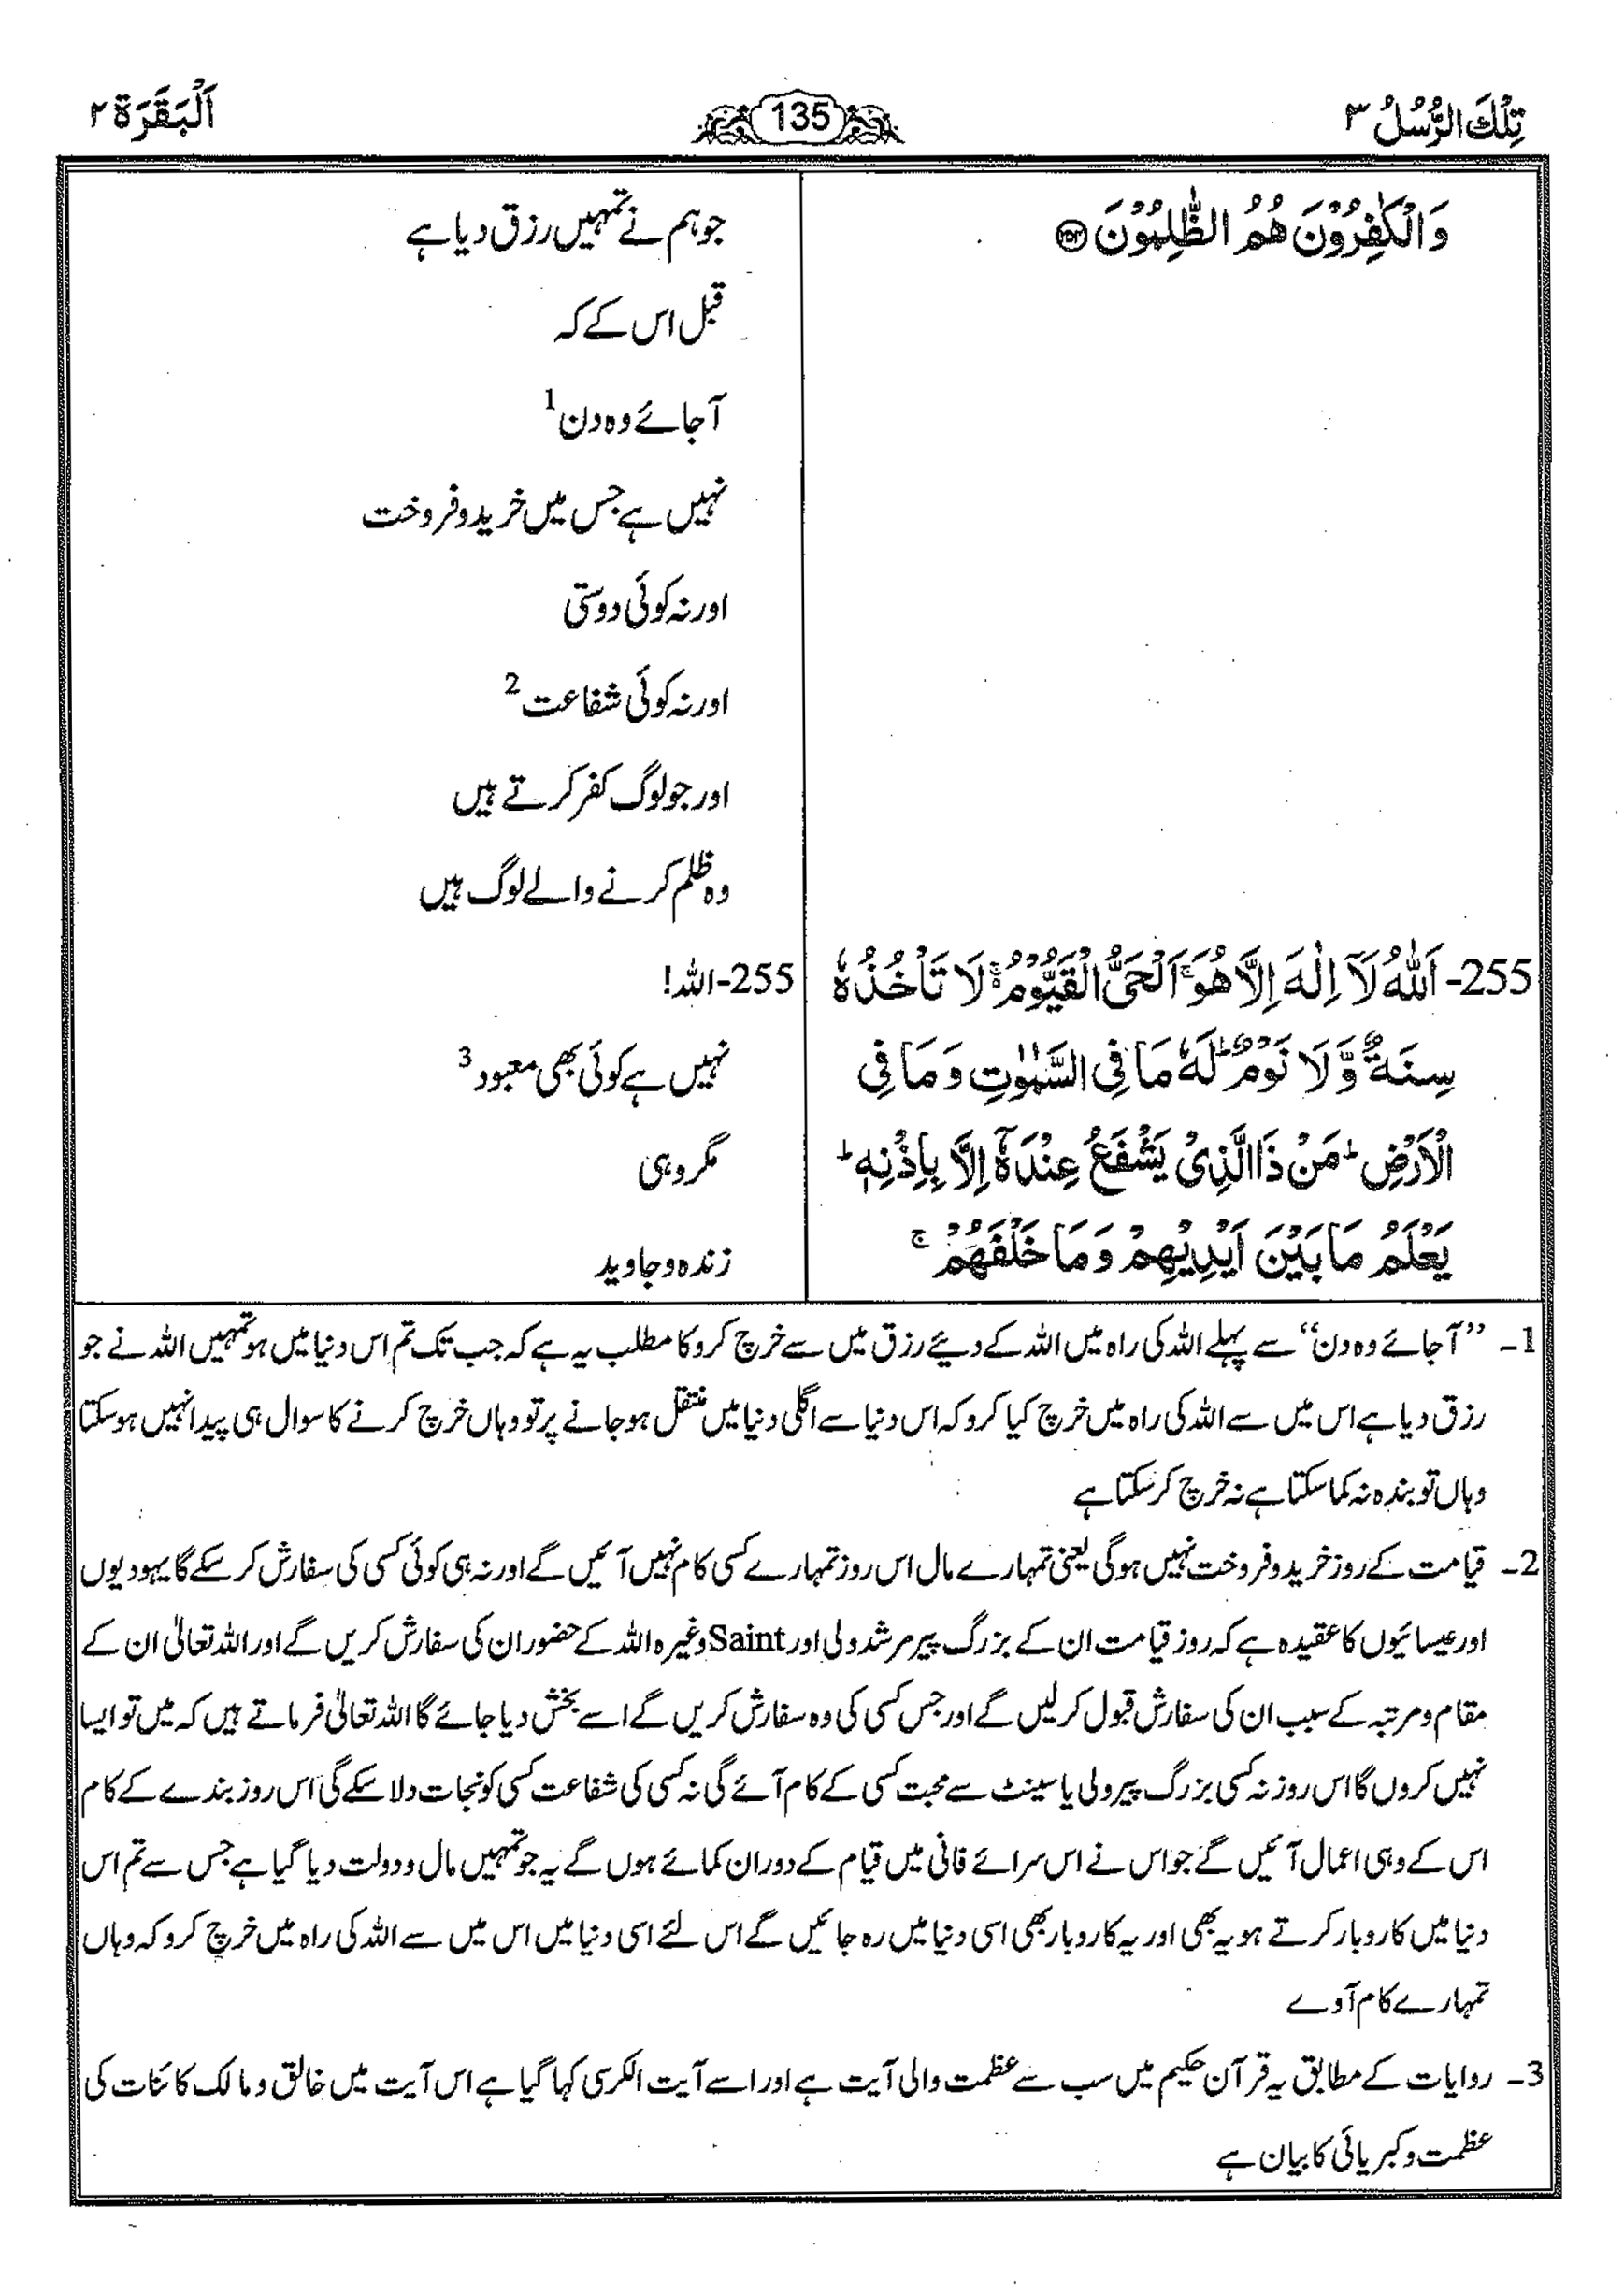 تِلْكَ الرُّسُلُ ۳
135
اَلْبَقَرَة ۲
وَالْكٰفِرُوْنَ هُمُ الظّٰلِمُوْنَ ﴿۲۵۴﴾
255- اَللّٰهُ لَاۤ اِلٰهَ اِلَّا هُوَ ۚ اَلْحَیُّ الْقَیُّوْمُ ۚ۬ لَا تَاْخُذُهٗ
سِنَةٌ وَّ لَا نَوْمٌ ؕ لَهٗ مَا فِی السَّمٰوٰتِ وَ مَا فِی
الْاَرْضِ ؕ مَنْ ذَا الَّذِیْ یَشْفَعُ عِنْدَهٗۤ اِلَّا بِاِذْنِهٖ ؕ
یَعْلَمُ مَا بَیْنَ اَیْدِیْهِمْ وَ مَا خَلْفَهُمْ ۚ
جو ہم نے تمہیں رزق دیا ہے
قبل اس کے کہ
آ جائے وہ دن 1
نہیں ہے جس میں خرید و فروخت
اور نہ کوئی دوستی
اور نہ کوئی شفاعت 2
اور جو لوگ کفر کرتے ہیں
وہ ظلم کرنے والے لوگ ہیں
255- اللہ!
نہیں ہے کوئی بھی معبود 3
مگر وہی
زندہ و جاوید
1۔ ”آ جائے وہ دن“ سے پہلے اللہ کی راہ میں اللہ کے دیئے رزق میں سے خرچ کرو کا مطلب یہ ہے کہ جب تک تم اس دنیا میں ہو تمہیں اللہ نے جو
رزق دیا ہے اس میں سے اللہ کی راہ میں خرچ کیا کرو کہ اس دنیا سے اگلی دنیا میں منتقل ہو جانے پر تو وہاں خرچ کرنے کا سوال ہی پیدا نہیں ہو سکتا
وہاں تو بندہ نہ کما سکتا ہے نہ خرچ کر سکتا ہے
2۔ قیامت کے روز خرید و فروخت نہیں ہوگی یعنی تمہارے مال اس روز تمہارے کسی کام نہیں آئیں گے اور نہ ہی کوئی کسی کی سفارش کر سکے گا یہودیوں
اور عیسائیوں کا عقیدہ ہے کہ روز قیامت ان کے بزرگ پیر مرشد ولی اور Saint وغیرہ اللہ کے حضور ان کی سفارش کریں گے اور اللہ تعالیٰ ان کے
مقام و مرتبہ کے سبب ان کی سفارش قبول کر لیں گے اور جس کسی کی وہ سفارش کریں گے اسے بخش دیا جائے گا اللہ تعالیٰ فرماتے ہیں کہ میں تو ایسا
نہیں کروں گا اس روز نہ کسی بزرگ پیر ولی یا سینٹ سے محبت کسی کے کام آئے گی نہ کسی کی شفاعت کسی کو نجات دلا سکے گی اس روز بندے کے کام
اس کے وہی اعمال آئیں گے جو اس نے اس سرائے فانی میں قیام کے دوران کمائے ہوں گے یہ جو تمہیں مال و دولت دیا گیا ہے جس سے تم اس
دنیا میں کاروبار کرتے ہو یہ بھی اور یہ کاروبار بھی اسی دنیا میں رہ جائیں گے اس لئے اسی دنیا میں اس میں سے اللہ کی راہ میں خرچ کرو کہ وہاں
تمہارے کام آوے
3۔ روایات کے مطابق یہ قرآن حکیم میں سب سے عظمت والی آیت ہے اور اسے آیت الکرسی کہا گیا ہے اس آیت میں خالق و مالک کائنات کی
عظمت و کبریائی کا بیان ہے